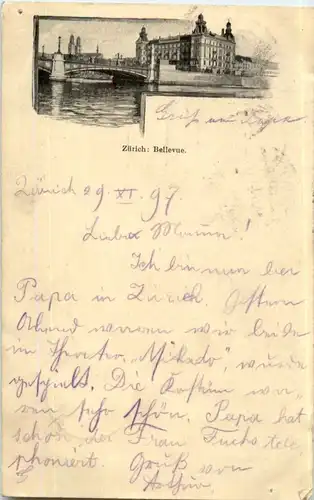 Gruß und Kuss
Zürich: Bellevue.
Zürich 29. XI. 97.
Liebe Mama!
Ich bin nun bei
Papa in Zürich. Gestern
Abend waren wir beide
im Theater, „Mikado", wurde
gespielt. Die Kostüm wa-
ren sehr schön. Papa hat
schon der Frau Fuchs tele
phoniert. Gruß von
Arthur